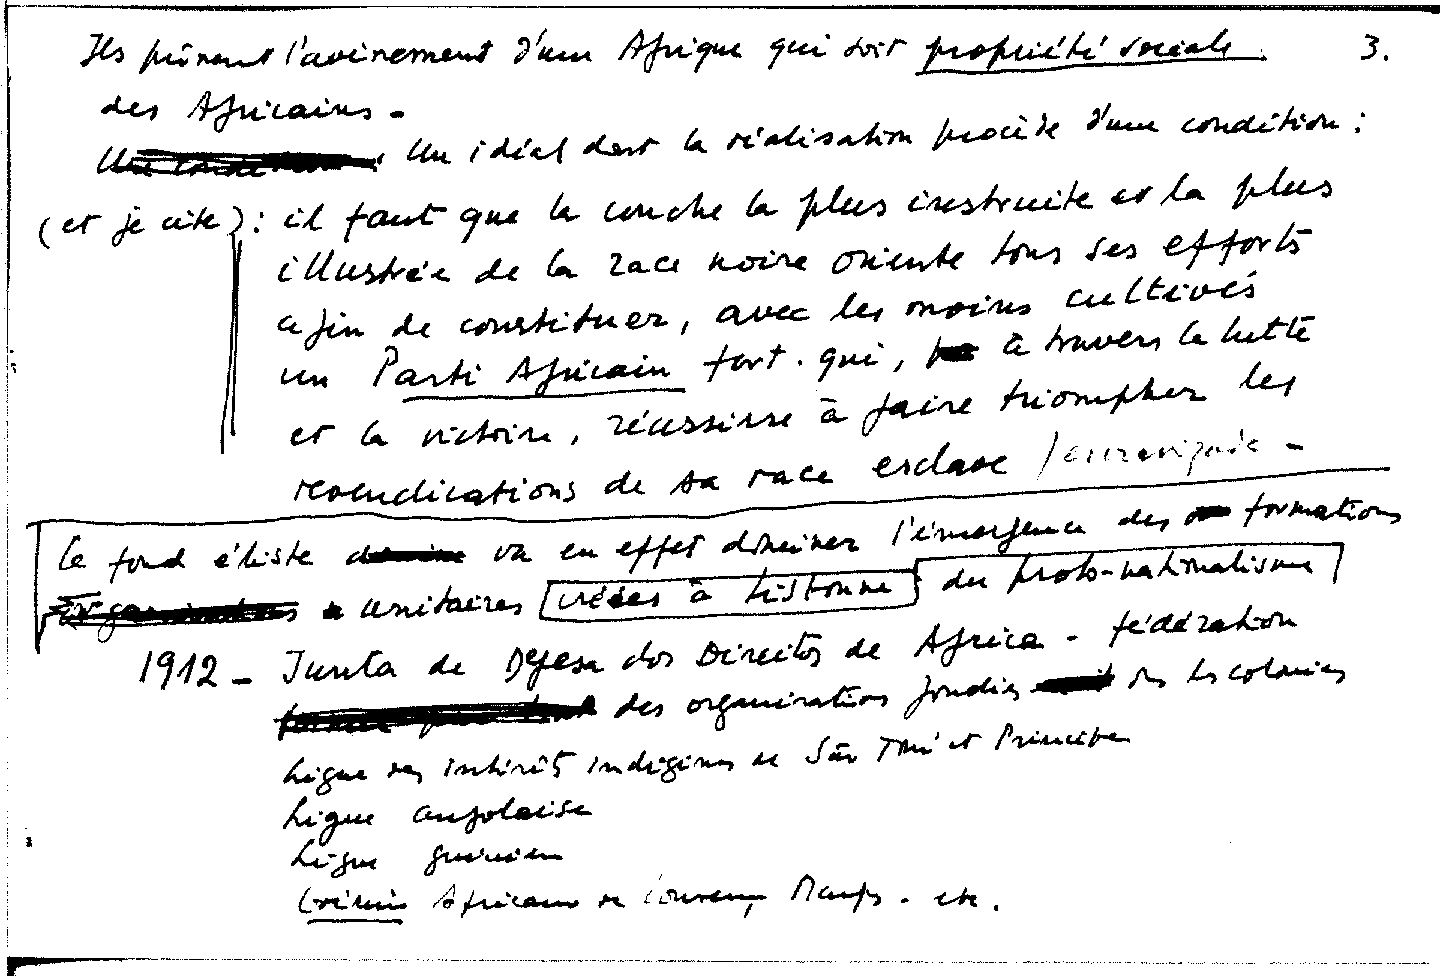 Ils prônent l'avènement d'une Afrique qui soit propriété sociale 3.
des Africains -
Un idéal dont la réalisation procède d'une condition :
(et je cite) : il faut que la couche la plus instruite et la plus
illustrée de la race noire oriente tous ses efforts
afin de constituer, avec les moins cultivés
un Parti Africain fort. qui, à travers la lutte
et la victoire, réussisse à faire triompher les
revendications de sa race esclave /
le fond élitiste va en effet dominer l'émergence des formations
unitaires créées à Lisbonne du proto-nationalisme
1912 - Junta de Defesa dos Direitos de Africa - fédération
des organisations fondées ds les colonies
Ligue des intérêts indigènes de São Tomé et Principe
Ligue angolaise
Ligue guinéenne
Grémio Africano de Lourenço Marqs. etc.